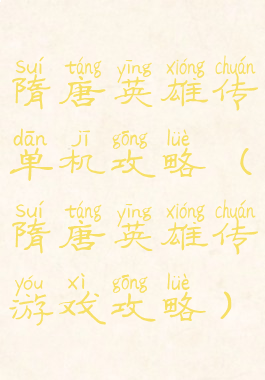 suí táng yīng xióng chuán
隋唐英雄传
dān jī gōng lüè
单机攻略（
suí táng yīng xióng chuán
隋唐英雄传
yóu xì gōng lüè
游戏攻略）